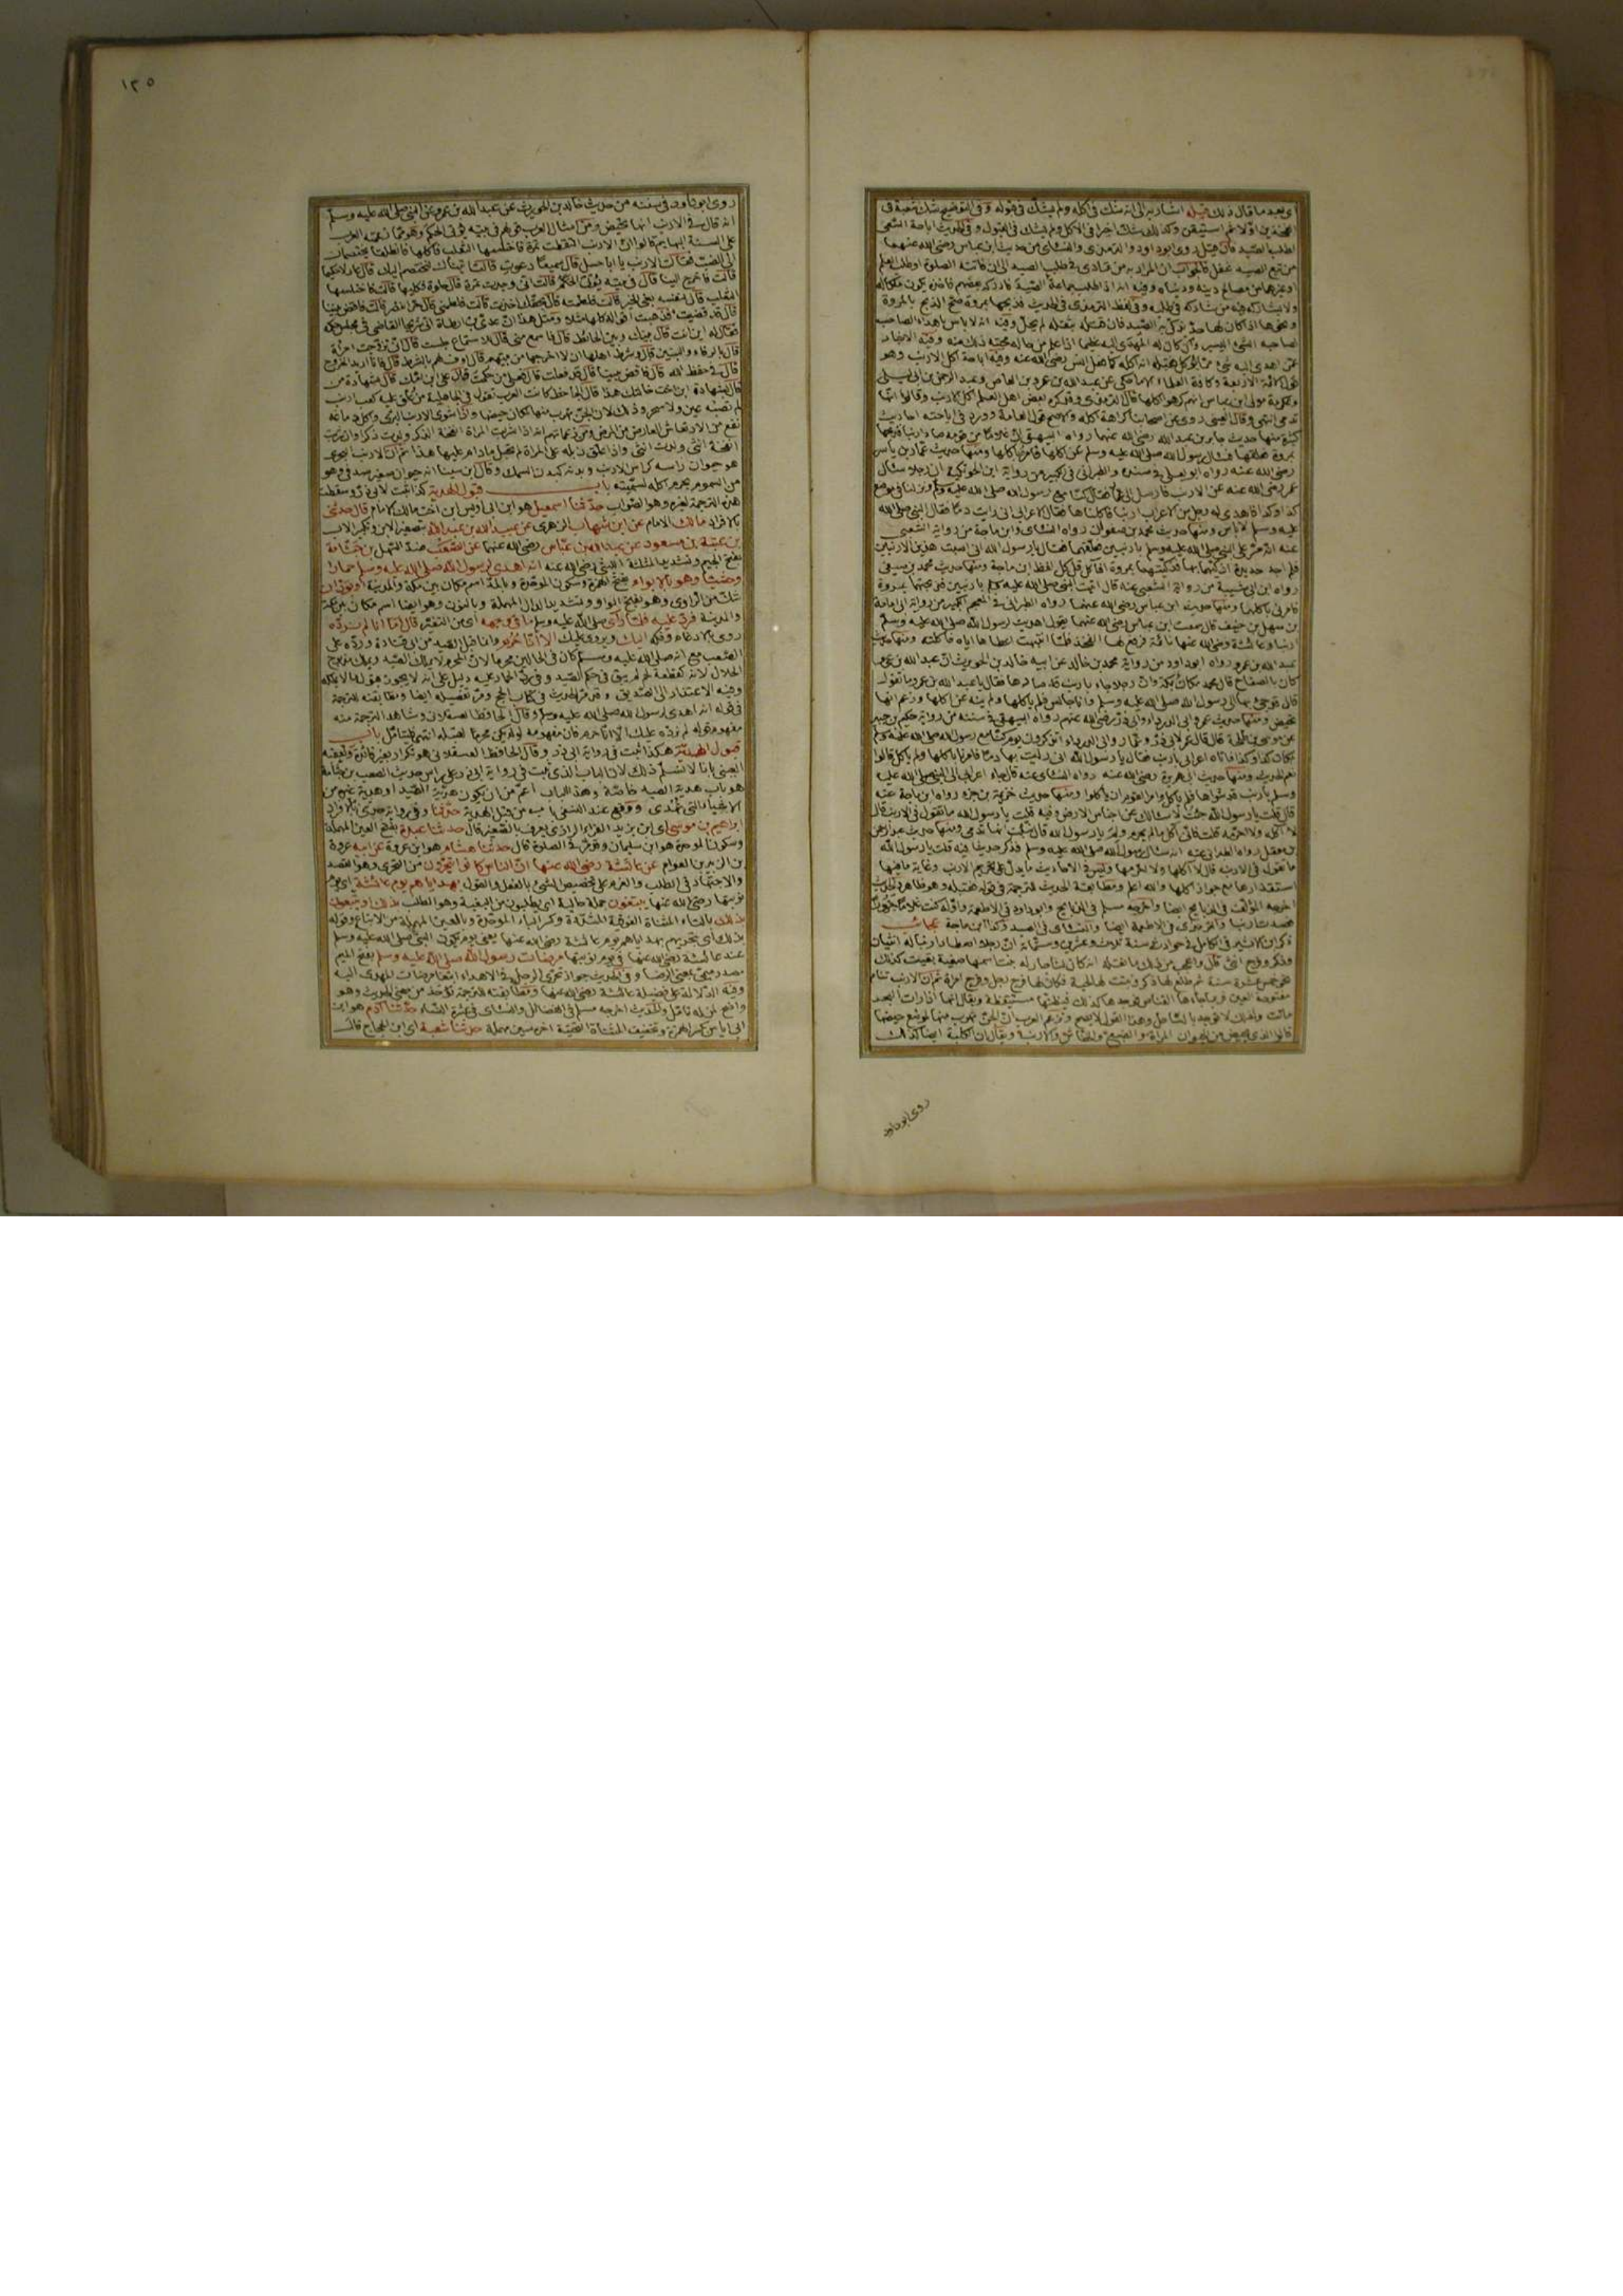 اي بعد ما قال ذلك قبله اشار به الى انه شك في اكله ولم يشك في قبوله وفي التوضيح شك شعبة في
الفخذين اولا ثم استيقن وكذلك شك اخرا في الاكل ولم يشك في القبول وفي الحديث اباحة السعي
لطلب الصيد فان قيل روى ابو داود والترمذي والنسائي من حديث ابن عباس رضي الله عنهما
من تبع الصيد غفل فالجواب ان المراد به من تمادى في طلب الصيد الى ان فاتته الصلوة او طلب العلم
او غيرهما من مصالح دينه ودنياه وفيه انه اذا طلب جماعة الصيد فادركه بعضهم فاخذه يكون ملكا له
ولا يشاركه فيه من شاركه في طلبه وفي لفظ الترمذي في الحديث فذبحها بمروة صحة الذبح بالمروة
صاحبه الشئ اليسير وان كان له المهدى اليه عظيما اذا علم من حاله محبته ذلك منه وفيه
عن اهدى اليه شئ مما يؤكل فقبله انه اكله كما فعل انس رضي الله عنه وفيه اباحة اكل الارنب وهو
قول الائمة الاربعة وكافة العلماء الا ما حكي عن عبد الله بن عمرو بن العاص وعبد الرحمن بن ابي ليلى
وعكرمة مولى ابن عباس انهم كرهوا اكلها قال الترمذي وقد كره بعض اهل العلم اكل الارنب وقالوا انها
تدمى انتهى وقال العيني روى عن اصحابنا كراهة اكله والاصح قول العامة وورد في اباحته احاديث
كثيرة منها حديث جابر بن عبد الله رضي الله عنهما رواه البيهقي ان غلاما من قومه صاد ارنبا فذبحها
بمروة فعلقها فسال رسول الله صلى الله عليه وسلم عن اكلها فامره باكلها ومنها حديث عمار بن ياسر
رضي الله عنه رواه ابو يعلى في مسنده والطبراني في الكبير من رواية ابن الحوتكية ان رجلا سال
عمر رضي الله عنه عن الارنب فارسل الى عمار فقال كنا مع رسول الله صلى الله عليه وسلم ونزلنا في موضع
كذا وكذا فاهدى له رجل من الاعراب ارنبا فاكلناها فقال الاعرابي اني رايت دما فقال النبي صلى الله
عليه وسلم لا باس ومنها حديث محمد بن صفوان رواه النسائي وابن ماجة من رواية الشعبي
عنه انه مر على النبي صلى الله عليه وسلم بارنبين معلقهما فقال يا رسول الله اني اصبت هذين الارنبين
فلم اجد حديدة اذكيهما بها فذكيتهما بمروة افاكل قال كل لفظ ابن ماجة ومنها حديث محمد بن صيفي
رواه ابن ابي شيبة من رواية الشعبي عنه قال اتيت النبي صلى الله عليه وسلم بارنبين فذبحتهما بمروة
فامرني باكلهما ومنها حديث ابن عباس رضي الله عنهما رواه الطبراني في المعجم الكبير من رواية ابي امامة
بن سهل بن حنيف قال سمعت ابن عباس رضي الله عنهما يقول اهديت رسول الله صلى الله عليه وسلم
ارنبا وعائشة رضي الله عنها نائمة فرفع لها الفخذ فلما انتبهت اعطاها اياه فاكلته ومنها حديث
عبد الله بن عمرو رواه ابو داود من رواية محمد بن خالد عن ابيه خالد بن الحويرث ان عبد الله بن عمرو
كان بالصفاح قال محمد مكان بمكة وان رجلا جاء بارنب قد صادها فقال يا عبد الله بن عمرو ما تقول
قال قد جئ بها الى رسول الله صلى الله عليه وسلم وانا جالس فلم ياكلها ولم ينه عن اكلها وزعم انها
تحيض ومنها حديث عمر وابي الدرداء وابي ذر رضي الله عنهم رواه البيهقي في سننه من رواية حكيم بن جبير
نعم الحديث ومنها حديث ابي هريرة رضي الله عنه رواه النسائي عنه قال جاء اعرابي الى النبي صلى الله عليه
وسلم بارنب قد شواها فلم ياكل وامر القوم ان ياكلوا ومنها حديث خزيمة بن جزء رواه ابن ماجة عنه
قال قلت يا رسول الله جئت لاسالك عن اجناس الارض وفيه قلت يا رسول الله ما تقول في الارنب قال
لا اكله ولا احرمه قلت فاني اكل ما لم تحرم ولم يا رسول الله قال نبئت انها تدمى ومنها حديث عبد الرحمن
بن معقل رواه الطبراني عنه انه سال رسول الله صلى الله عليه وسلم فذكر حديثا فيه قلت يا رسول الله
ما تقول في الارنب قال لا اكلها ولا احرمها وليس في الاحاديث ما يدل على تحريم الارنب وغاية ما فيها
استقذارها مع جواز اكلها والله اعلم ومطابقة الحديث للترجمة في قوله فقبله وهو ظاهر والحديث
اخرجه المؤلف في الذبائح ايضا واخرجه مسلم في الذبائح وابو داود في الاطعمة واوله كنت غلاما حزورا
فصدت ارنبا والترمذي في الاطعمة ايضا والنسائي في الصيد وكذا ابن ماجة عجائب
ذكر ابن الاثير في الكامل في حوادث سنة ثلاث وعشرين وستمائة ان رجلا اصطاد ارنبا له انثيان
وذكر وفرج انثى قال واعجب من ذلك ما نقله انه كان لنا جار له بنت اسمها صفية بقيت كذلك
نحو خمس عشرة سنة ثم طلع لها ذكر ونبتت لها لحية فكان لها فرج رجل وفرج امراة ثم ان الارنب تنام
مفتوحة العين فربما جاءها القناص فوجدها كذلك فيظنها مستيقظة ويقال انها اذا رات البحر
ماتت ولذلك لا توجد بالساحل وهذا القول لا يصح وتزعم العرب ان الجن تهرب منها لموضع حيضها
قالوا الذي يحيض من الحيوان المراة والضبع والخفاش والارنب ويقال ان الكلبة ايضا كذلك
روى ابو داود
١٢٥
روى ابو داود في سننه من حديث خالد بن الحويرث عن عبد الله بن عمرو عن النبي صلى الله عليه وسلم
انه قال في الارنب انها تحيض ومن امثال العرب قولهم في بيته يؤتى الحكم وهو مما زعمته العرب
على السنة البهايم قالوا ان الارنب التقطت تمرة فاختلسها الثعلب فاكلها فانطلقا يختصمان
الى الضب فقالت الارنب يا ابا حسل قال سميعا دعوت قالت اتيناك لنختصم اليك قال عادلا حكيما
قالت فاخرج الينا قال في بيته يؤتى الحكم قالت اني وجدت تمرة قال حلوة فكليها قالت فاختلسها
الثعلب قال لنفسه بغى الخير قالت فلطمته قال بحقك اخذت قالت فلطمني قال حر انتصر قالت فاقض بيننا
قال قد قضيت فذهبت اقواله كلها مثلا ومثل هذا ان عدي بن ارطاة اتى شريحا القاضي في مجلس حكمه
فقال له اين انت قال بينك وبين الحائط قال فاسمع مني قال للاستماع جلست قال اني تزوجت امراة
قال بالرفاء والبنين قال وشرط اهلها ان لا اخرجها من بينهم قال اوف لهم بالشرط قال فانا اريد الخروج
قال في حفظ الله قال فاقض بيننا قال قد فعلت قال فعلى من حكمت قال على ابن امك قال بشهادة من
قال بشهادة ابن اخت خالتك هذا قال الجاحظ كانت العرب تقول في الجاهلية من علق عليه كعب ارنب
لم تصبه عين ولا سحر وذلك لان الجن تهرب منها لمكان حيضها واذا شوي الارنب البري واكل دماغه
نفع من الارتعاش العارض من المرض ومن زعماتهم انه اذا شربت المراة انفحة الذكر ولدت ذكرا وان شربت
انفحة الانثى ولدت انثى واذا علق زبله على المراة لم تحبل مادام عليها هذا ثم ان الارنب البحري
هو حيوان راسه كراس الارنب وبدنه كبدن السمك وقال ابن سينا انه حيوان صغير صدفي وهو
من السموم يحرم اكله لسميته باب قبول الهدية كذا ثبت لابي ذر وسقطت
هذه الترجمة لغيره وهو الصواب حدثنا اسمعيل هو ابن ابي اويس ابن اخت مالك الامام قال حدثني
بالافراد مالك الامام عن ابن شهاب الزهري عن عبيد الله بن عبد الله بتصغير الابن وتكبير الاب
بن عتبة بن مسعود عن عبد الله بن عباس رضي الله عنهما عن الصعب ضد السهل بن جثامة
بفتح الجيم وتشديد المثلثة الليثي رضي الله عنه انه اهدى لرسول الله صلى الله عليه وسلم حمارا
وحشيا وهو بالابواء بفتح الهمزة وسكون الموحدة وبالمد اسم مكان بين مكة والمدينة او بودان
شك من الراوي وهو بفتح الواو وتشديد الدال المهملة وبالنون وهو ايضا اسم مكان بين مكة
والمدينة فرد عليه فلما راى صلى الله عليه وسلم ما في وجهه اي من التغير قال اما انا لم نرده
روي بالادغام وفكه اليك ويروى عليك الا انا حرم وانما قبل الصيد من ابي قتادة ورده على
الصعب مع انه صلى الله عليه وسلم كان في الحالين محرما لان المحرم لا يملك الصيد ويملك مذبوح
الحلال لانه كقطعة لحم لم يبق في حكم الصيد وفي رد الحمار عليه دليل على انه لا يجوز قبول ما لا يحل له
وفيه الاعتذار الى الصديق وقد مر الحديث في كتاب الحج ومر تفصيله ايضا ومطابقته للترجمة
في قوله انه اهدى لرسول الله صلى الله عليه وسلم وقال الحافظ العسقلاني وشاهد الترجمة منه
مفهوم قوله لم نرده عليك الا انا حرم فان مفهومه لو لم يكن محرما لقبله انتهى فليتامل باب
قبول الهدية هكذا ثبت في رواية ابي ذر وقال الحافظ العسقلاني هو تكرار بغير فائدة وتعقبه
العيني بانا لا نسلم ذلك لان الباب الذي ثبت في رواية ابي ذر على راس حديث الصعب بن جثامة
هو باب هدية الصيد خاصة وهذا الباب اعم من ان يكون هدية الصيد او هدية غيره من
الاشياء التي تهدى ووقع عند النسفي باب من قبل الهدية حدثنا وفي رواية حدثني بالافراد
ابراهيم بن موسى اي ابن يزيد الفراء الرازي يعرف بالصغير قال حدثنا عبدة بفتح العين المهملة
وسكون الموحدة هو ابن سليمان وقد مر في الصلوة قال حدثنا هشام هو ابن عروة عن ابيه عروة
بن الزبير بن العوام عن عائشة رضي الله عنها ان الناس كانوا يتحرون من التحري وهو القصد
والاجتهاد في الطلب والعزم على تخصيص الشئ بالفعل والقول بهداياهم يوم عائشة اي يوم
نوبتها رضي الله عنها يبتغون جملة حالية اي يطلبون من البغية وهو الطلب بذلك او يتبعون
بذلك بالتاء المثناة الفوقية المشددة وكسر الباء الموحدة وبالعين المهملة من الاتباع وقوله
بذلك اي بتحريهم بهداياهم يوم عائشة رضي الله عنها يعني يوم يكون النبي صلى الله عليه وسلم
عند عائشة رضي الله عنها في يوم نوبتها مرضات رسول الله صلى الله عليه وسلم بفتح الميم
مصدر ميمي بمعنى الرضا وفي الحديث جواز تحري الرجل في الاهداء ابتغاء مرضات المهدى اليه
وفيه الدلالة على فضيلة عائشة رضي الله عنها ومطابقته للترجمة تؤخذ من معنى الحديث وهو
واضح لمن له تامل والحديث اخرجه مسلم في الفضائل والنسائي في عشرة النساء حدثنا آدم هو ابن
ابي اياس بكسر الهمزة وتخفيف المثناة التحتية اخره سين مهملة حدثنا شعبة اي ابن الحجاج قال